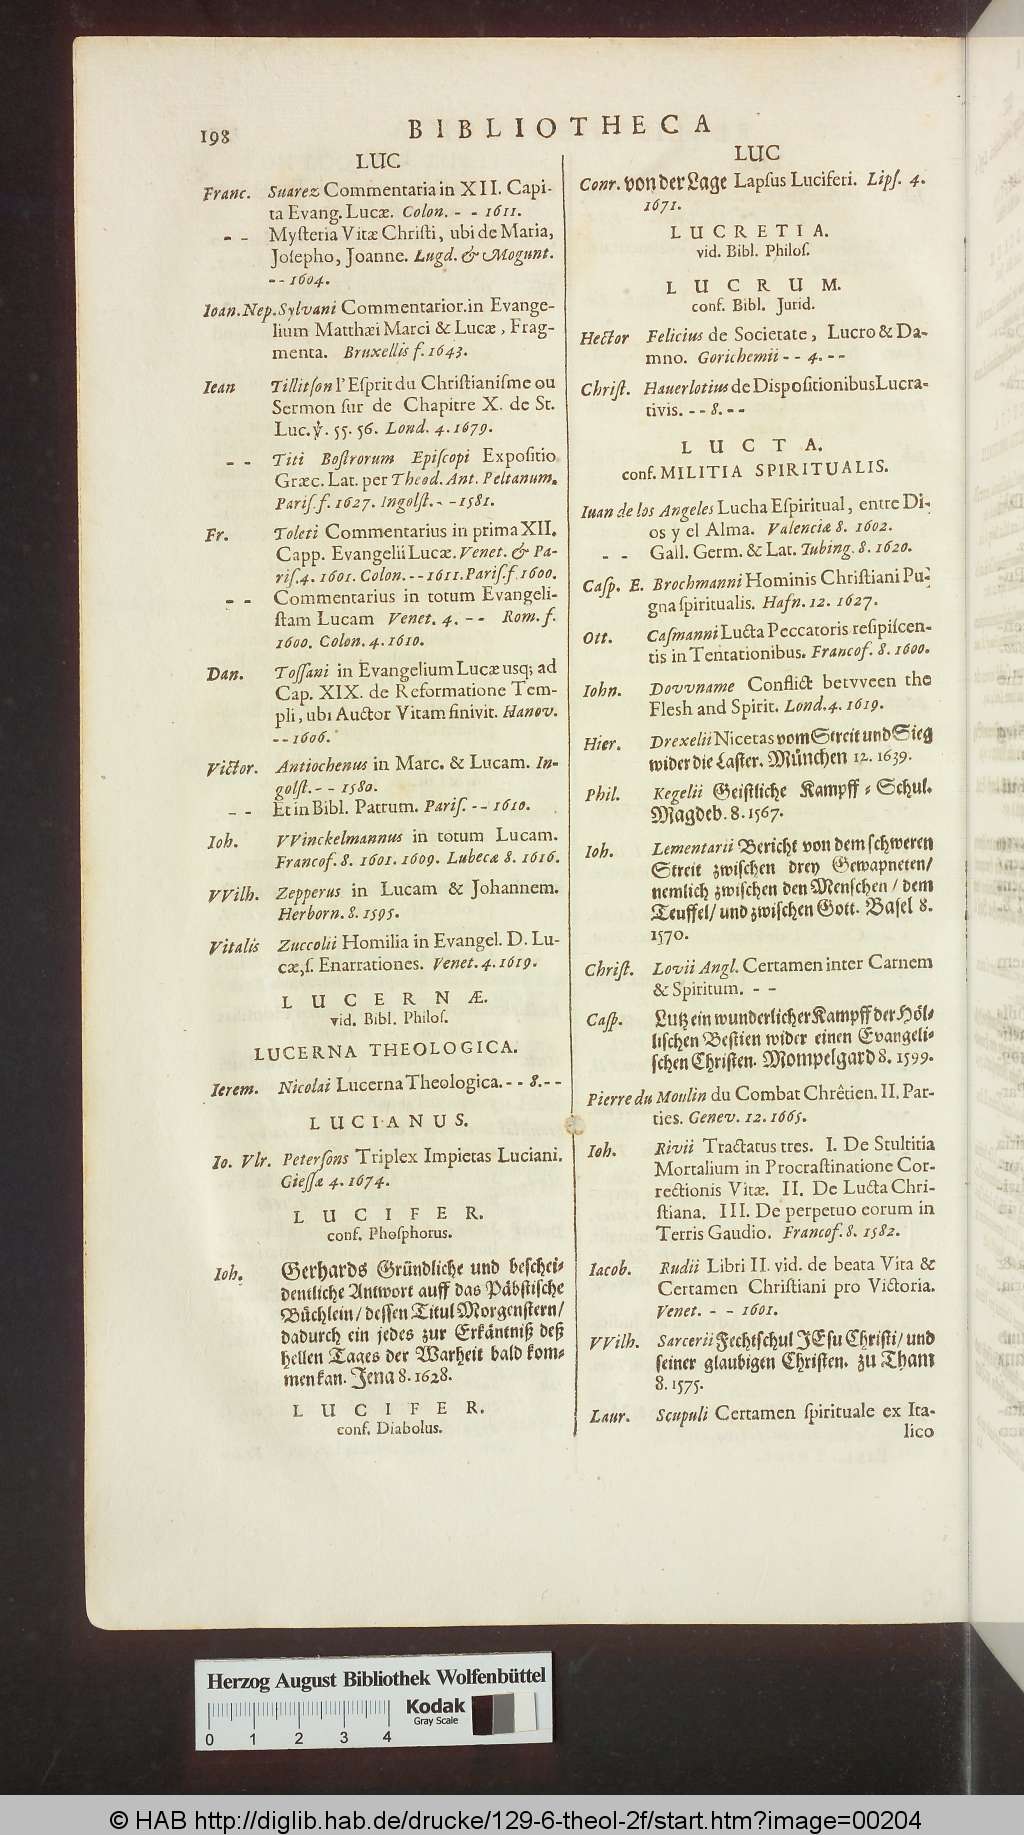 198
BIBLIOTHECA
LUC
Franc. Suarez Commentaria in XII. Capi-
ta Evang. Lucæ. Colon. - - 1611.
- - Mysteria Vitæ Christi, ubi de Maria,
Josepho, Joanne. Lugd. & Mogunt.
- - 1604.
Ioan. Nep. Sylvani Commentarior. in Evange-
lium Matthæi Marci & Lucæ, Frag-
menta. Bruxellis f. 1643.
Iean Tillitson l'Esprit du Christianisme ou
Sermon sur de Chapitre X. de St.
Luc. ℣. 55. 56. Lond. 4. 1679.
- - Titi Bostrorum Episcopi Expositio
Græc. Lat. per Theod. Ant. Peltanum.
Paris. f. 1627. Ingolst. - - 1581.
Fr. Toleti Commentarius in prima XII.
Capp. Evangelii Lucæ. Venet. & Pa-
ris. 4. 1601. Colon. - - 1611. Paris. f. 1600.
- - Commentarius in totum Evangeli-
stam Lucam Venet. 4. - - Rom. f.
1600. Colon. 4. 1610.
Dan. Tossani in Evangelium Lucæ usq; ad
Cap. XIX. de Reformatione Tem-
pli, ubi Auctor Vitam finivit. Hanov.
- - 1606.
Victor. Antiochenus in Marc. & Lucam. In-
golst. - - 1580.
- - Et in Bibl. Patrum. Paris. - - 1610.
Ioh. VVinckelmannus in totum Lucam.
Francof. 8. 1601. 1609. Lubecæ 8. 1616.
VVilh. Zepperus in Lucam & Johannem.
Herborn. 8. 1595.
Vitalis Zuccolii Homilia in Evangel. D. Lu-
cæ, s. Enarrationes. Venet. 4. 1619.
LUCERNÆ.
vid. Bibl. Philos.
LUCERNA THEOLOGICA.
Ierem. Nicolai Lucerna Theologica. - - 8. - -
LUCIANUS.
Io. Vlr. Petersons Triplex Impietas Luciani.
Giessæ 4. 1674.
LUCIFER.
conf. Phosphorus.
Ioh. Gerhards Gründliche und beschei-
dentliche Antwort auff das Päbstische
Büchlein/ dessen Titul Morgenstern/
dadurch ein jedes zur Erkäntniß deß
hellen Tages der Warheit bald kom-
men kan. Jena 8. 1628.
LUCIFER.
conf. Diabolus.
LUC
Conr. von der Lage Lapsus Luciferi. Lips. 4.
1671.
LUCRETIA.
vid. Bibl. Philos.
LUCRUM.
conf. Bibl. Jurid.
Hector Felicius de Societate, Lucro & Da-
mno. Gorichemii - - 4. - -
Christ. Hauerlotius de Dispositionibus Lucra-
tivis. - - 8. - -
LUCTA.
conf. MILITIA SPIRITUALIS.
Iuan de los Angeles Lucha Espiritual, entre Di-
os y el Alma. Valenciæ 8. 1602.
- - Gall. Germ. & Lat. Tubing. 8. 1620.
Casp. E. Brochmanni Hominis Christiani Pu-
gna spiritualis. Hafn. 12. 1627.
Ott. Casmanni Lucta Peccatoris resipiscen-
tis in Tentationibus. Francof. 8. 1600.
Iohn. Dovvname Conflict betvveen the
Flesh and Spirit. Lond. 4. 1619.
Hier. Drexelii Nicetas vom Streit und Sieg
wider die Laster. München 12. 1639.
Phil. Kegelii Geistliche Kampff-Schul.
Magdeb. 8. 1567.
Ioh. Lementarii Bericht von dem schweren
Streit zwischen drey Gewapneten/
nemlich zwischen den Menschen / dem
Teuffel/ und zwischen Gott. Basel 8.
1570.
Christ. Lovii Angl. Certamen inter Carnem
& Spiritum. - -
Casp. Lutz ein wunderlicher Kampff der Höl-
lischen Bestien wider einen Evangeli-
schen Christen. Mompelgard 8. 1599.
Pierre du Moulin du Combat Chrêtien. II. Par-
ties. Genev. 12. 1665.
Ioh. Rivii Tractatus tres. I. De Stultitia
Mortalium in Procrastinatione Cor-
rectionis Vitæ. II. De Lucta Chri-
stiana. III. De perpetuo eorum in
Terris Gaudio. Francof. 8. 1582.
Iacob. Rudii Libri II. vid. de beata Vita &
Certamen Christiani pro Victoria.
Venet. - - 1601.
VVilh. Sarcerii Fechtschul JEsu Christi/ und
seiner glaubigen Christen. zu Tham
8. 1575.
Laur. Scupuli Certamen spirituale ex Ita-
lico
Herzog August Bibliothek Wolfenbüttel
Kodak
Gray Scale
0 1 2 3 4
© HAB http://diglib.hab.de/drucke/129-6-theol-2f/start.htm?image=00204